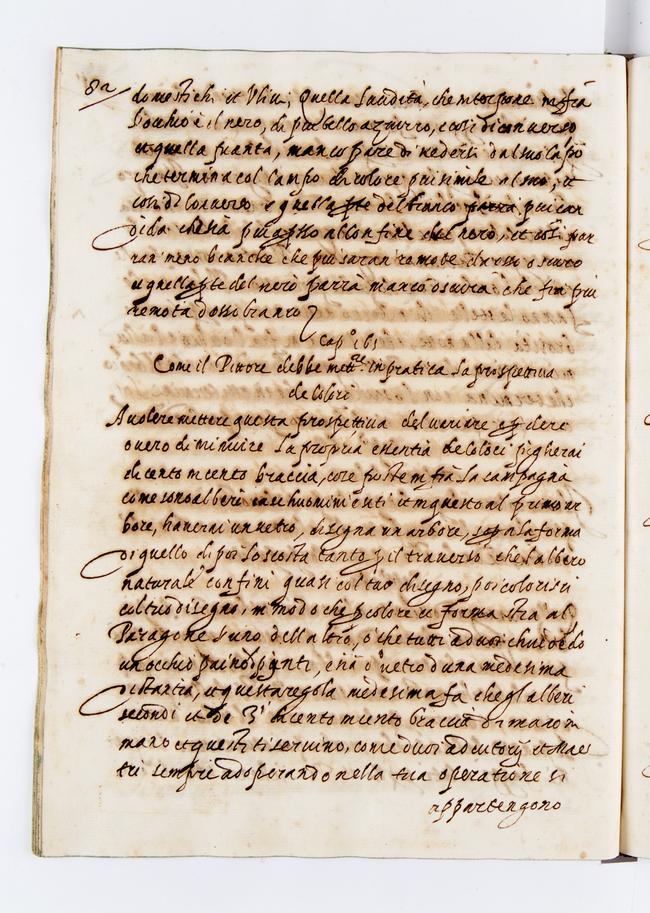 82
domestichi et Vliui; Quella Luidità, che interpone infrà
l'occhio e il nero, di più bello azzurro, e così di conuerso
et quella pianta, manco pare di uederti dal suo lato
che termina col campo di colore più simile al suo, et
così di conuerso e quella pte del bianco parrà più can
dida che sia più apsso al confine del nero, et così par
ran' meno bianche che più saran' remote da esso oscuro
et quella pte del nero parrà manco oscura che fia più
remota da esso bianco
Cap.º 161
Come il Pittore debbe mettere in pratica la prospettiua
de Colori
A uolere mettere questa prospettiua del uariare et pdere
ouero diminuire la propria essentia de Colori pigherai
di cento in cento braccia, cose poste infrà la campagna
come sono alberi case huomini et siti et in questo al primo ar
bore, hauerai un uetro, disegna un arbore, sopra la forma
di quello di poi lo scosta tanto p il trauerso che l'albero
naturale confini quasi col tuo disegno, poi colorisci
col tuo disegno, in modo che p colore et forma stia al
Paragone l'uno dell altro, o che tutti a duoi chiudēdo
un occhio paino dipinti, e in ō uetro d una medesima
distantia, et questa regola medesima fà che gl'alberi
secondi et de 3.i di cento in cento braccia di mano in
mano et questi ti seruino, come duoi adiutorij et Maes
tri sempre adoperando nella tua operatione si
appartengono